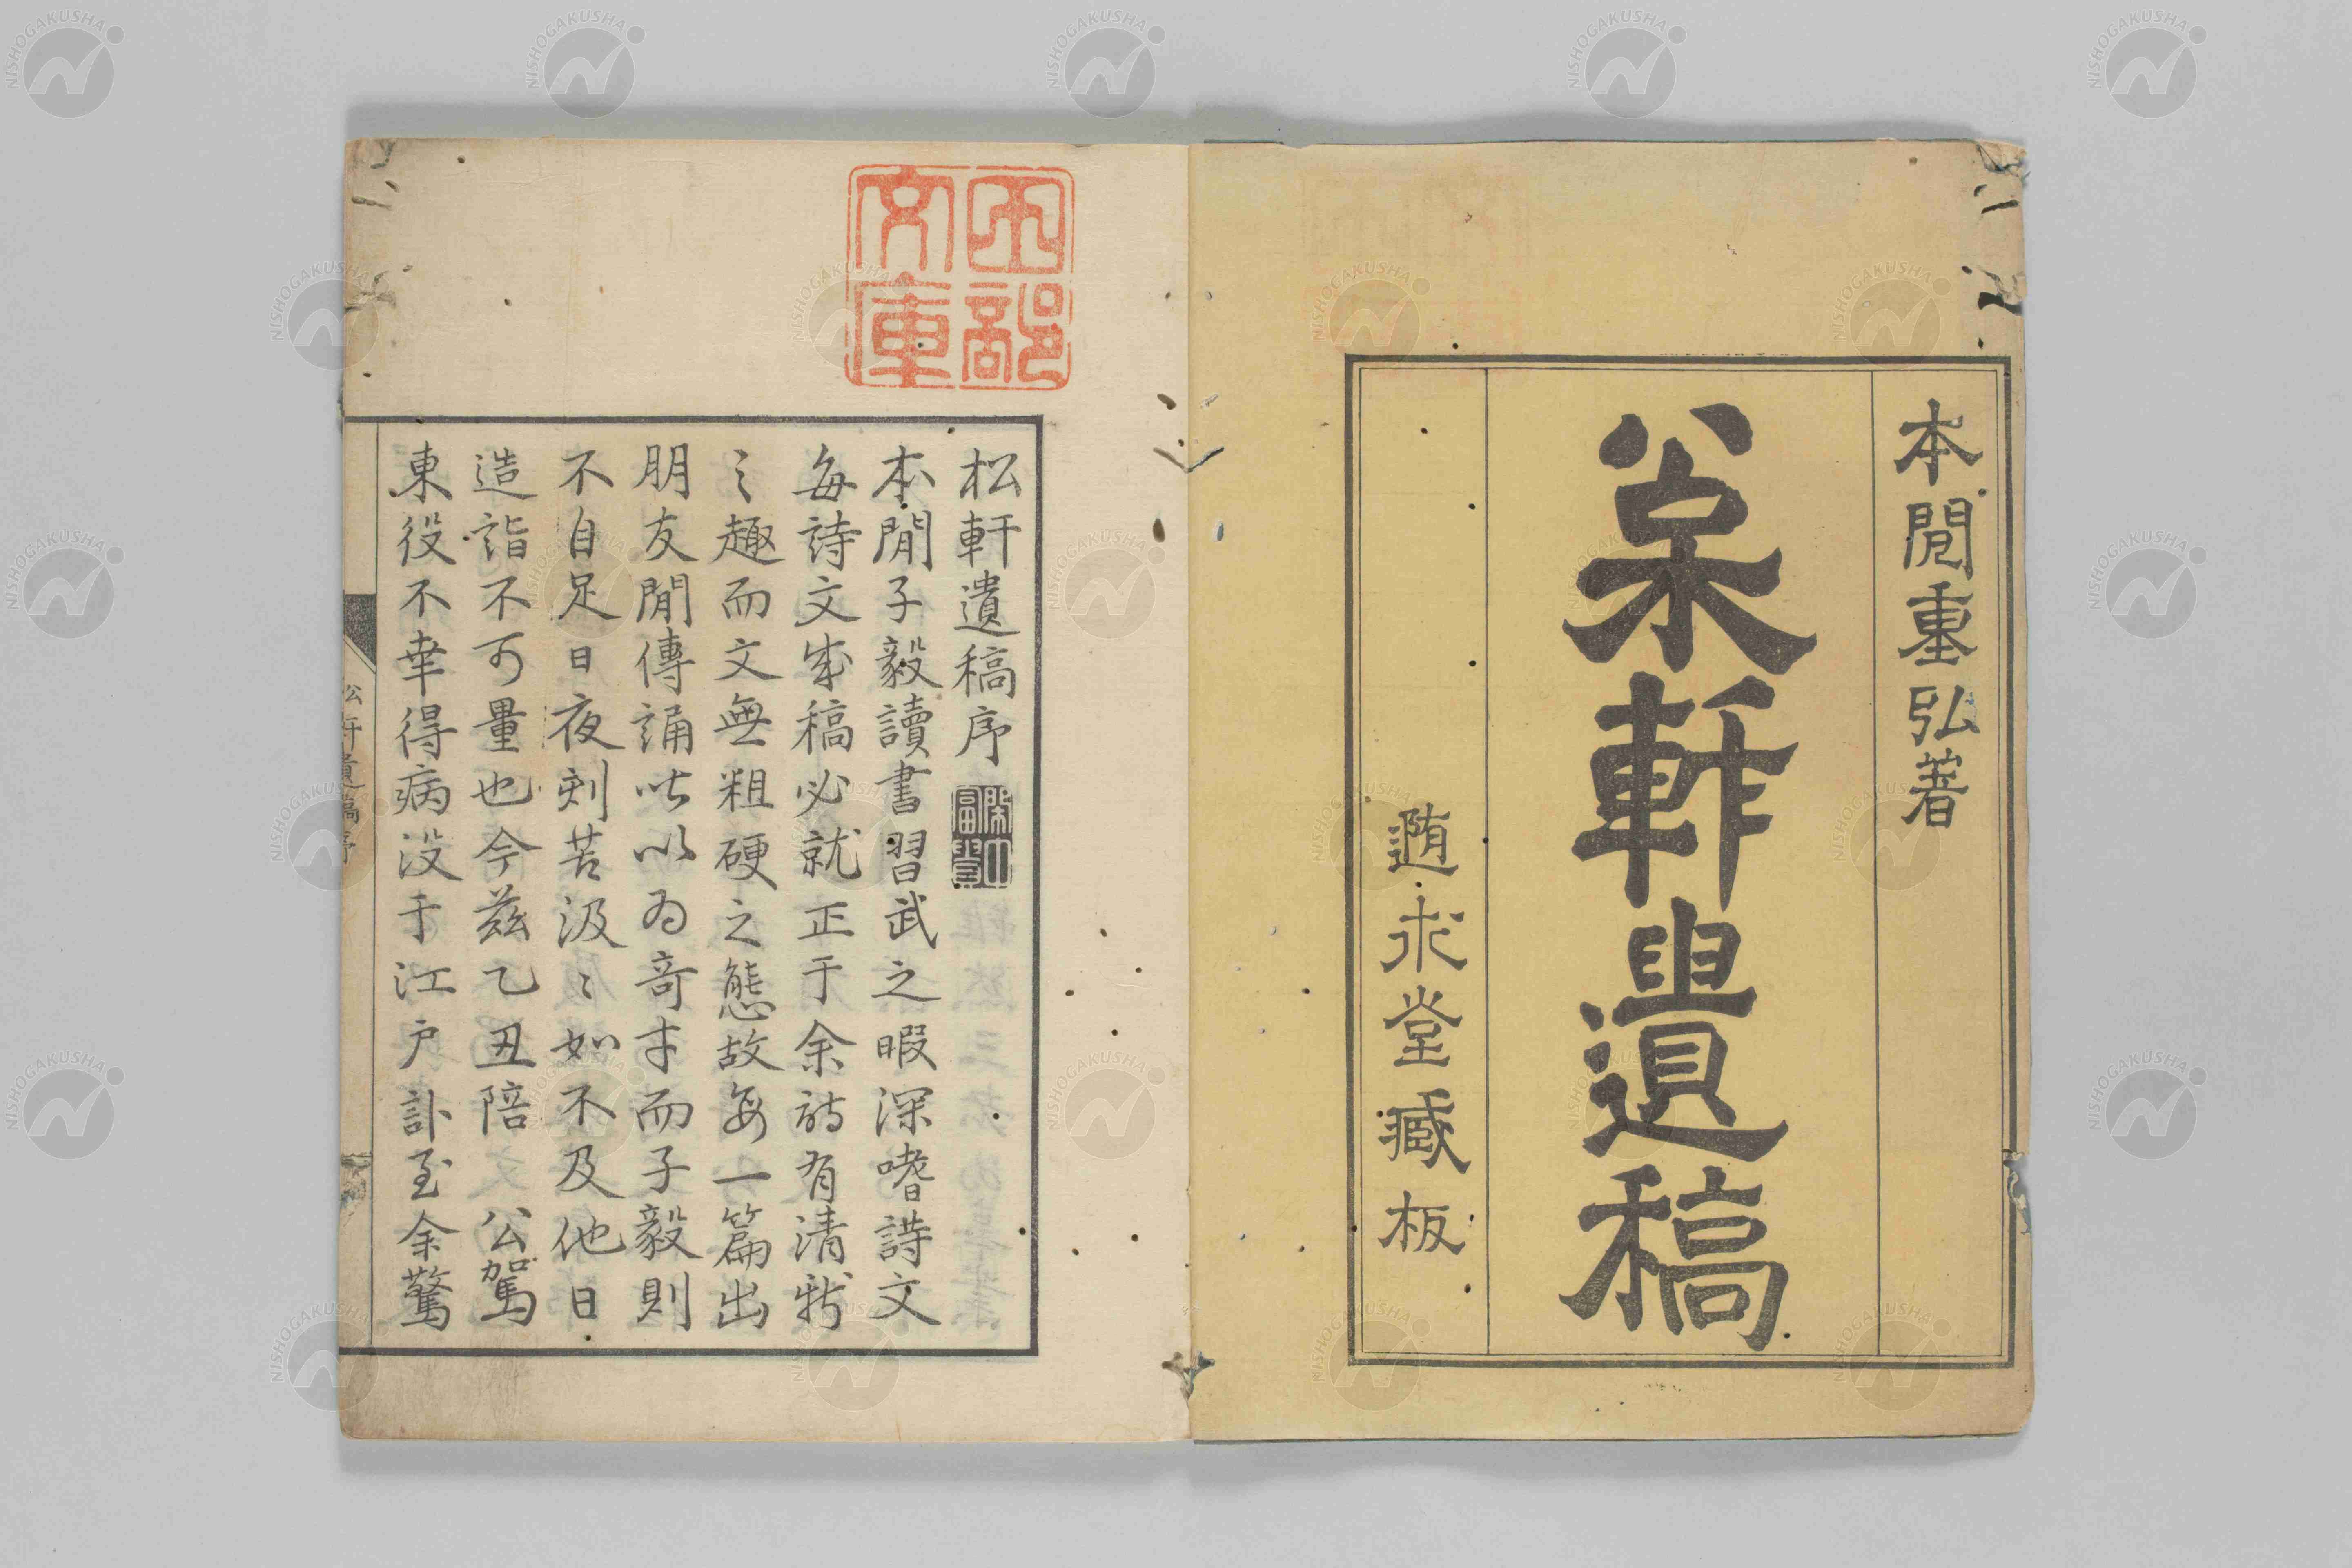 本閒重弘著
枀軒遺稿
遒求堂臧板
松軒遺稿序
本閒子毅讀書習武之暇深嗜詩文
每詩文成稿必就正于余詩有清新
〻趣而文無粗硬之態故每一篇出
朋友閒傳誦皆以為奇才而子毅則
不自足日夜刻苦汲〻如不及他日
造詣不可量也今茲乙丑陪公駕
東役不幸得病沒于江戶訃至余驚
松軒遺稿序
文庫
NISHOGAKUSHA